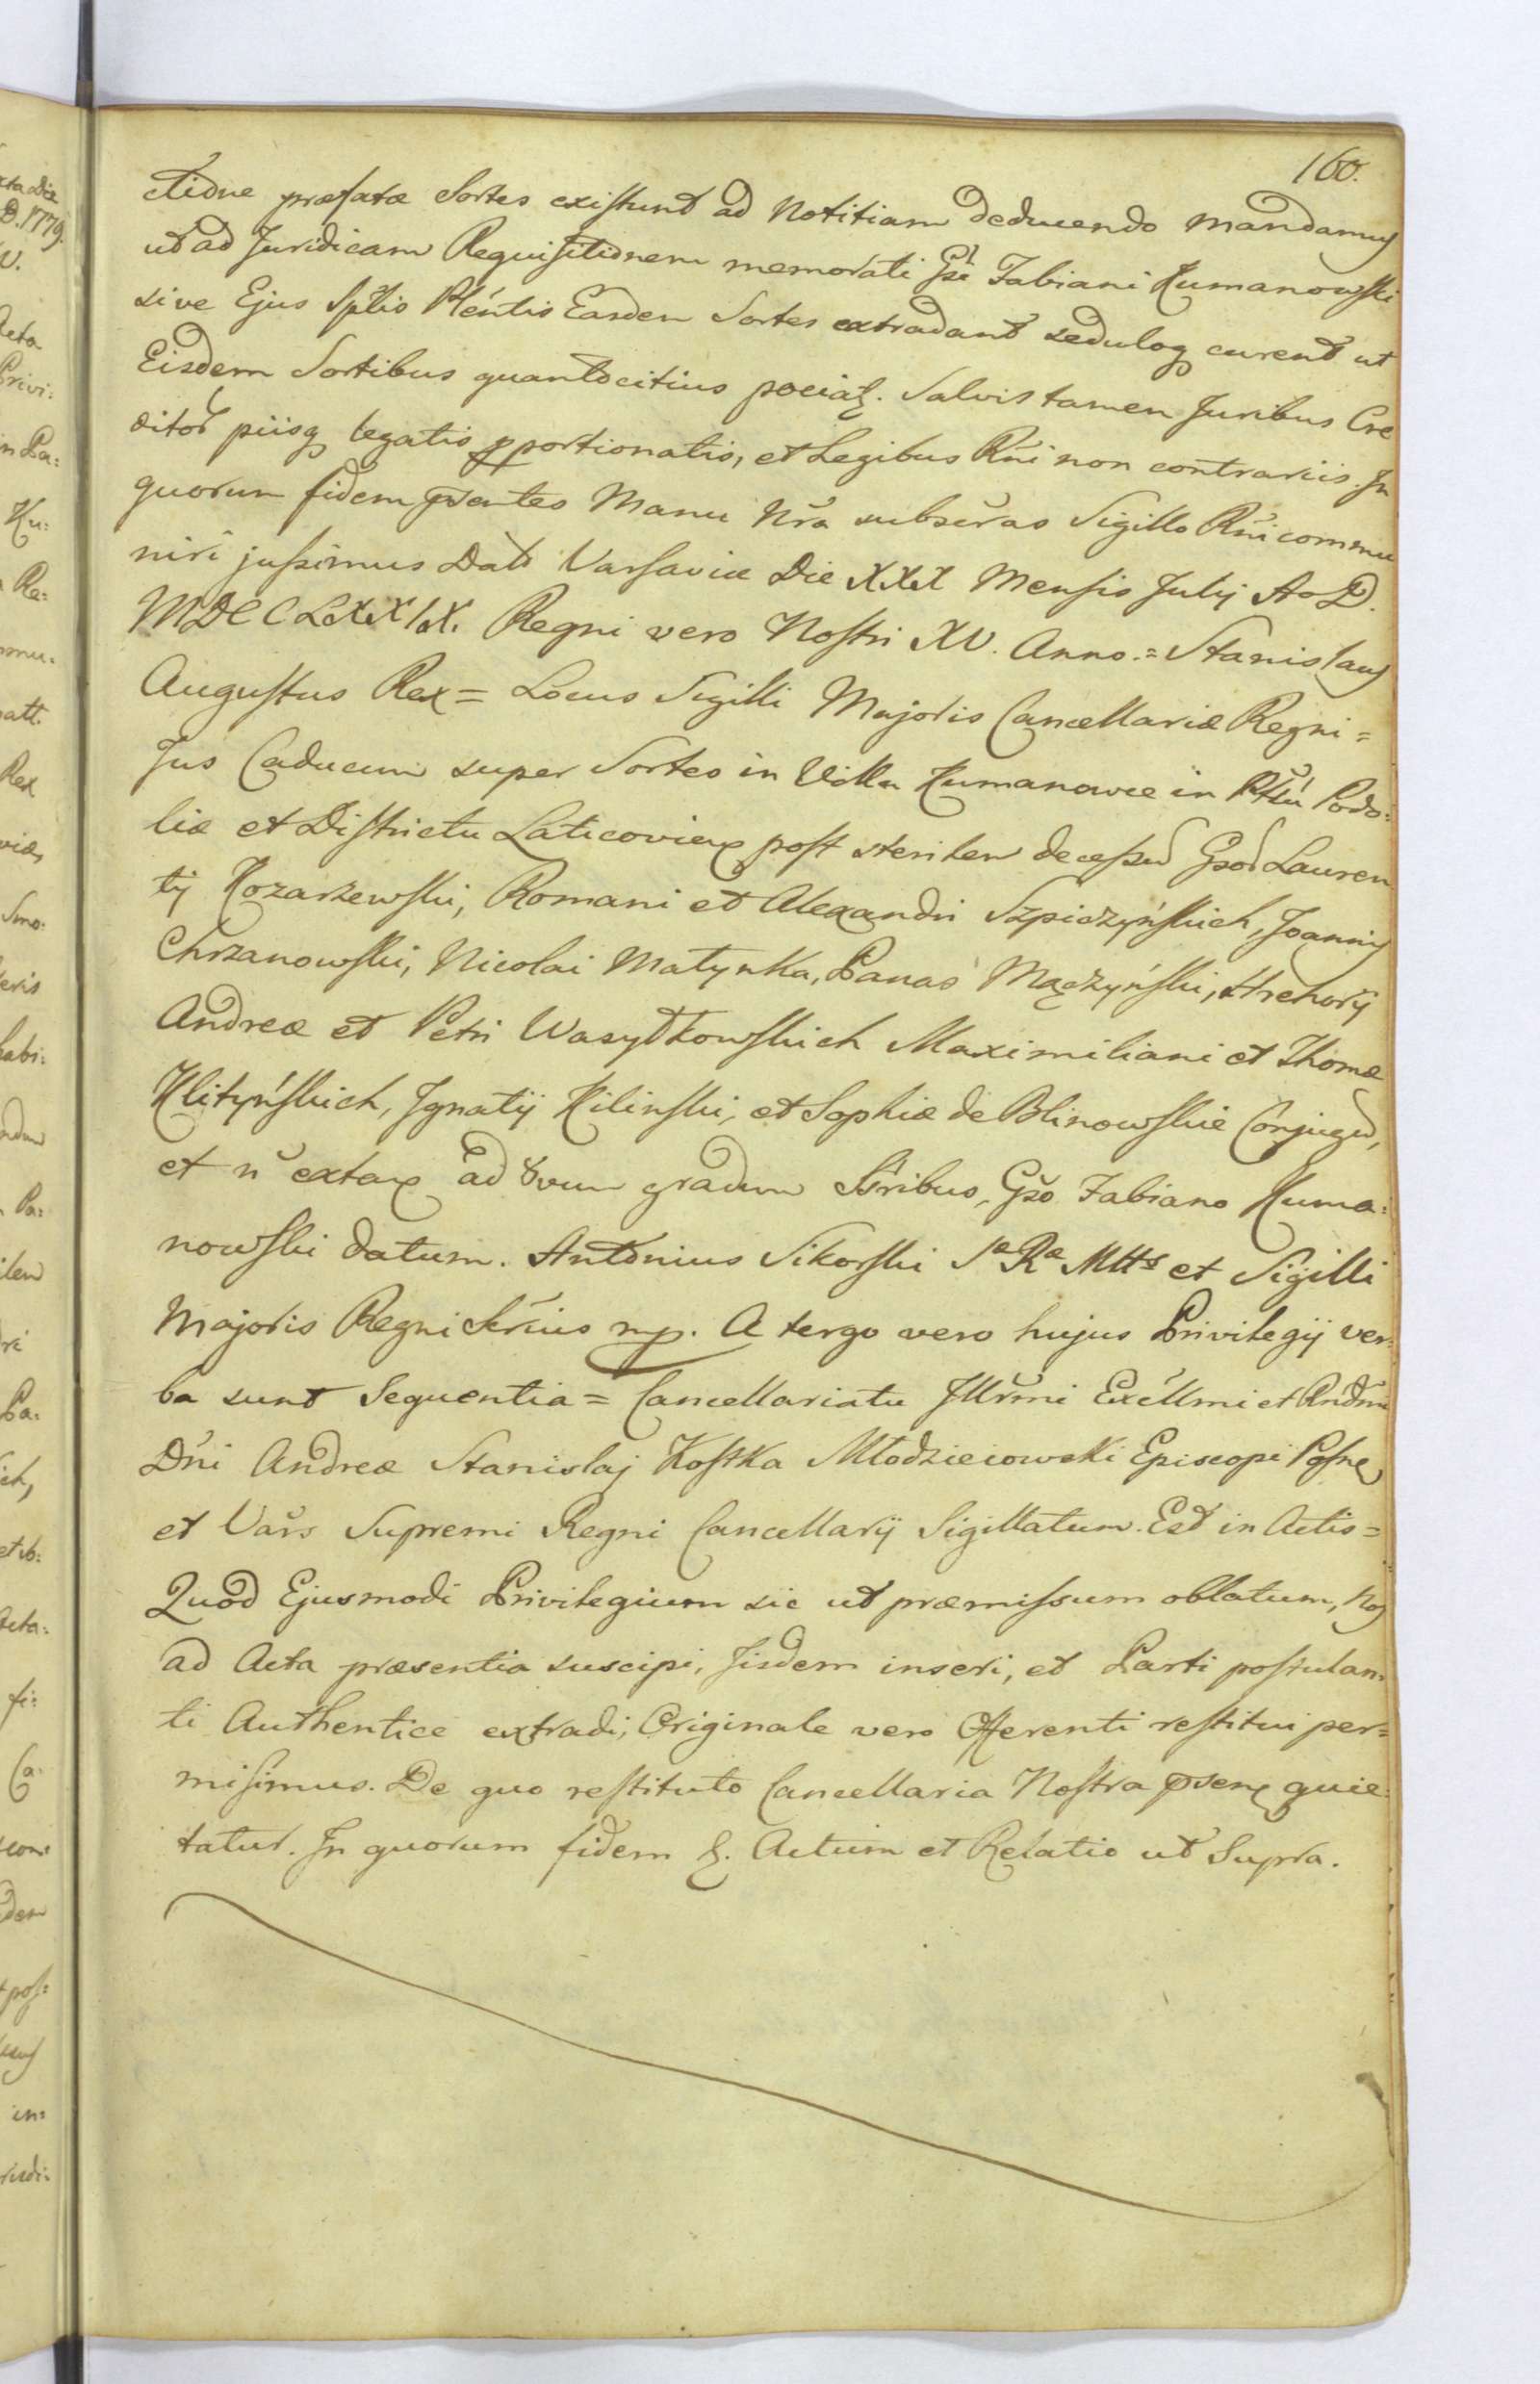 160.
ctione præfatæ Sortes existunt ad Notitiam deducendo mandamus
ut ad Juridicam Requisitionem memorati Gsi Fabiani Kumanowski
sive Ejus Spłis Pleńtis Easdem Sortes extradant seduloq curent ut
Eisdem Sortibus quantocitius pociat. Salvis tamen Juribus Cre
ditor piisq legatis pportionatis, et Legibus Rńi non contrariis. In
quorum fidem psentes Manu Nrã subscras Sigillo Rńi commu
niri jussimus Dat Varsaviæ Die XXX Mensis Julij A D.
MDCCLXXIX. Regni vero Nostri XV. Anno.= Stanislaus
Augustus Rex = Locus Sigilli Majoris Cancellariæ Regni =
Jus Caducum super Sortes in Villa Kumanowce in Pttu Podo:
liæ et Districtu Laticovien post sterilem decessu Gsor Lauren
tij Kozarzewski, Romani et Alexandri Szpiczyńskich, Joannis
Chrzanowski, Nicolai Matynka, Panas Mączyński, Hrehorij
Andreæ et Petri Wasyłkowskich Maximiliani et Thomæ
Klityńskich, Ignatij Kilinski, et Sophiæ de Blinowskie Conjugu,
et n extan ad 8vum gradum Ssribus, Gso Fabiano Kuma:
nowski datum. Antonius Sikorski Sæ Ræ Mtts et Sigilli
Majoris Regni Srius mp. A tergo vero hujus Privilegij ver:
ba sunt Sequentia = Cancellariatu Illrmi Excllmi et Rndmi
Dńi Andreæ Stanislaj Kostka Młodzieiowski Episcopi Posn
et Vars Supremi Regni Cancellarij Sigillatum. Est in Actis =
Quod Ejusmodi Privilegium sic ut præmissum oblatum, Nos
ad Acta præsentia suscipi, Iisdem inseri, et Parti postulan
ti Authentice extradi, Originale vero Offerenti restitui per=
misimus. De quo restituto Cancellaria Nostra psen quie
tatur. In quorum fidem &. Actum et Relatio ut Supra.